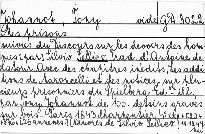 Johannot, Tony vide GD 3022
Mes prisons
suivies du Discours sur les devoirs des hom-
mes (par) Silvio Pellico trad. d'Antoine de
Latour. Avec des chapitres inédits, les addi-
tions de Maroncelli et des notices sur plu-
sieurs prisonniers du Spielberg. Ed. ill.
par Tony Johannot de 100 dessins gravés
sur bois. Paris 1843 Charpentier.
(Oeuvres de Silvio Pellico)